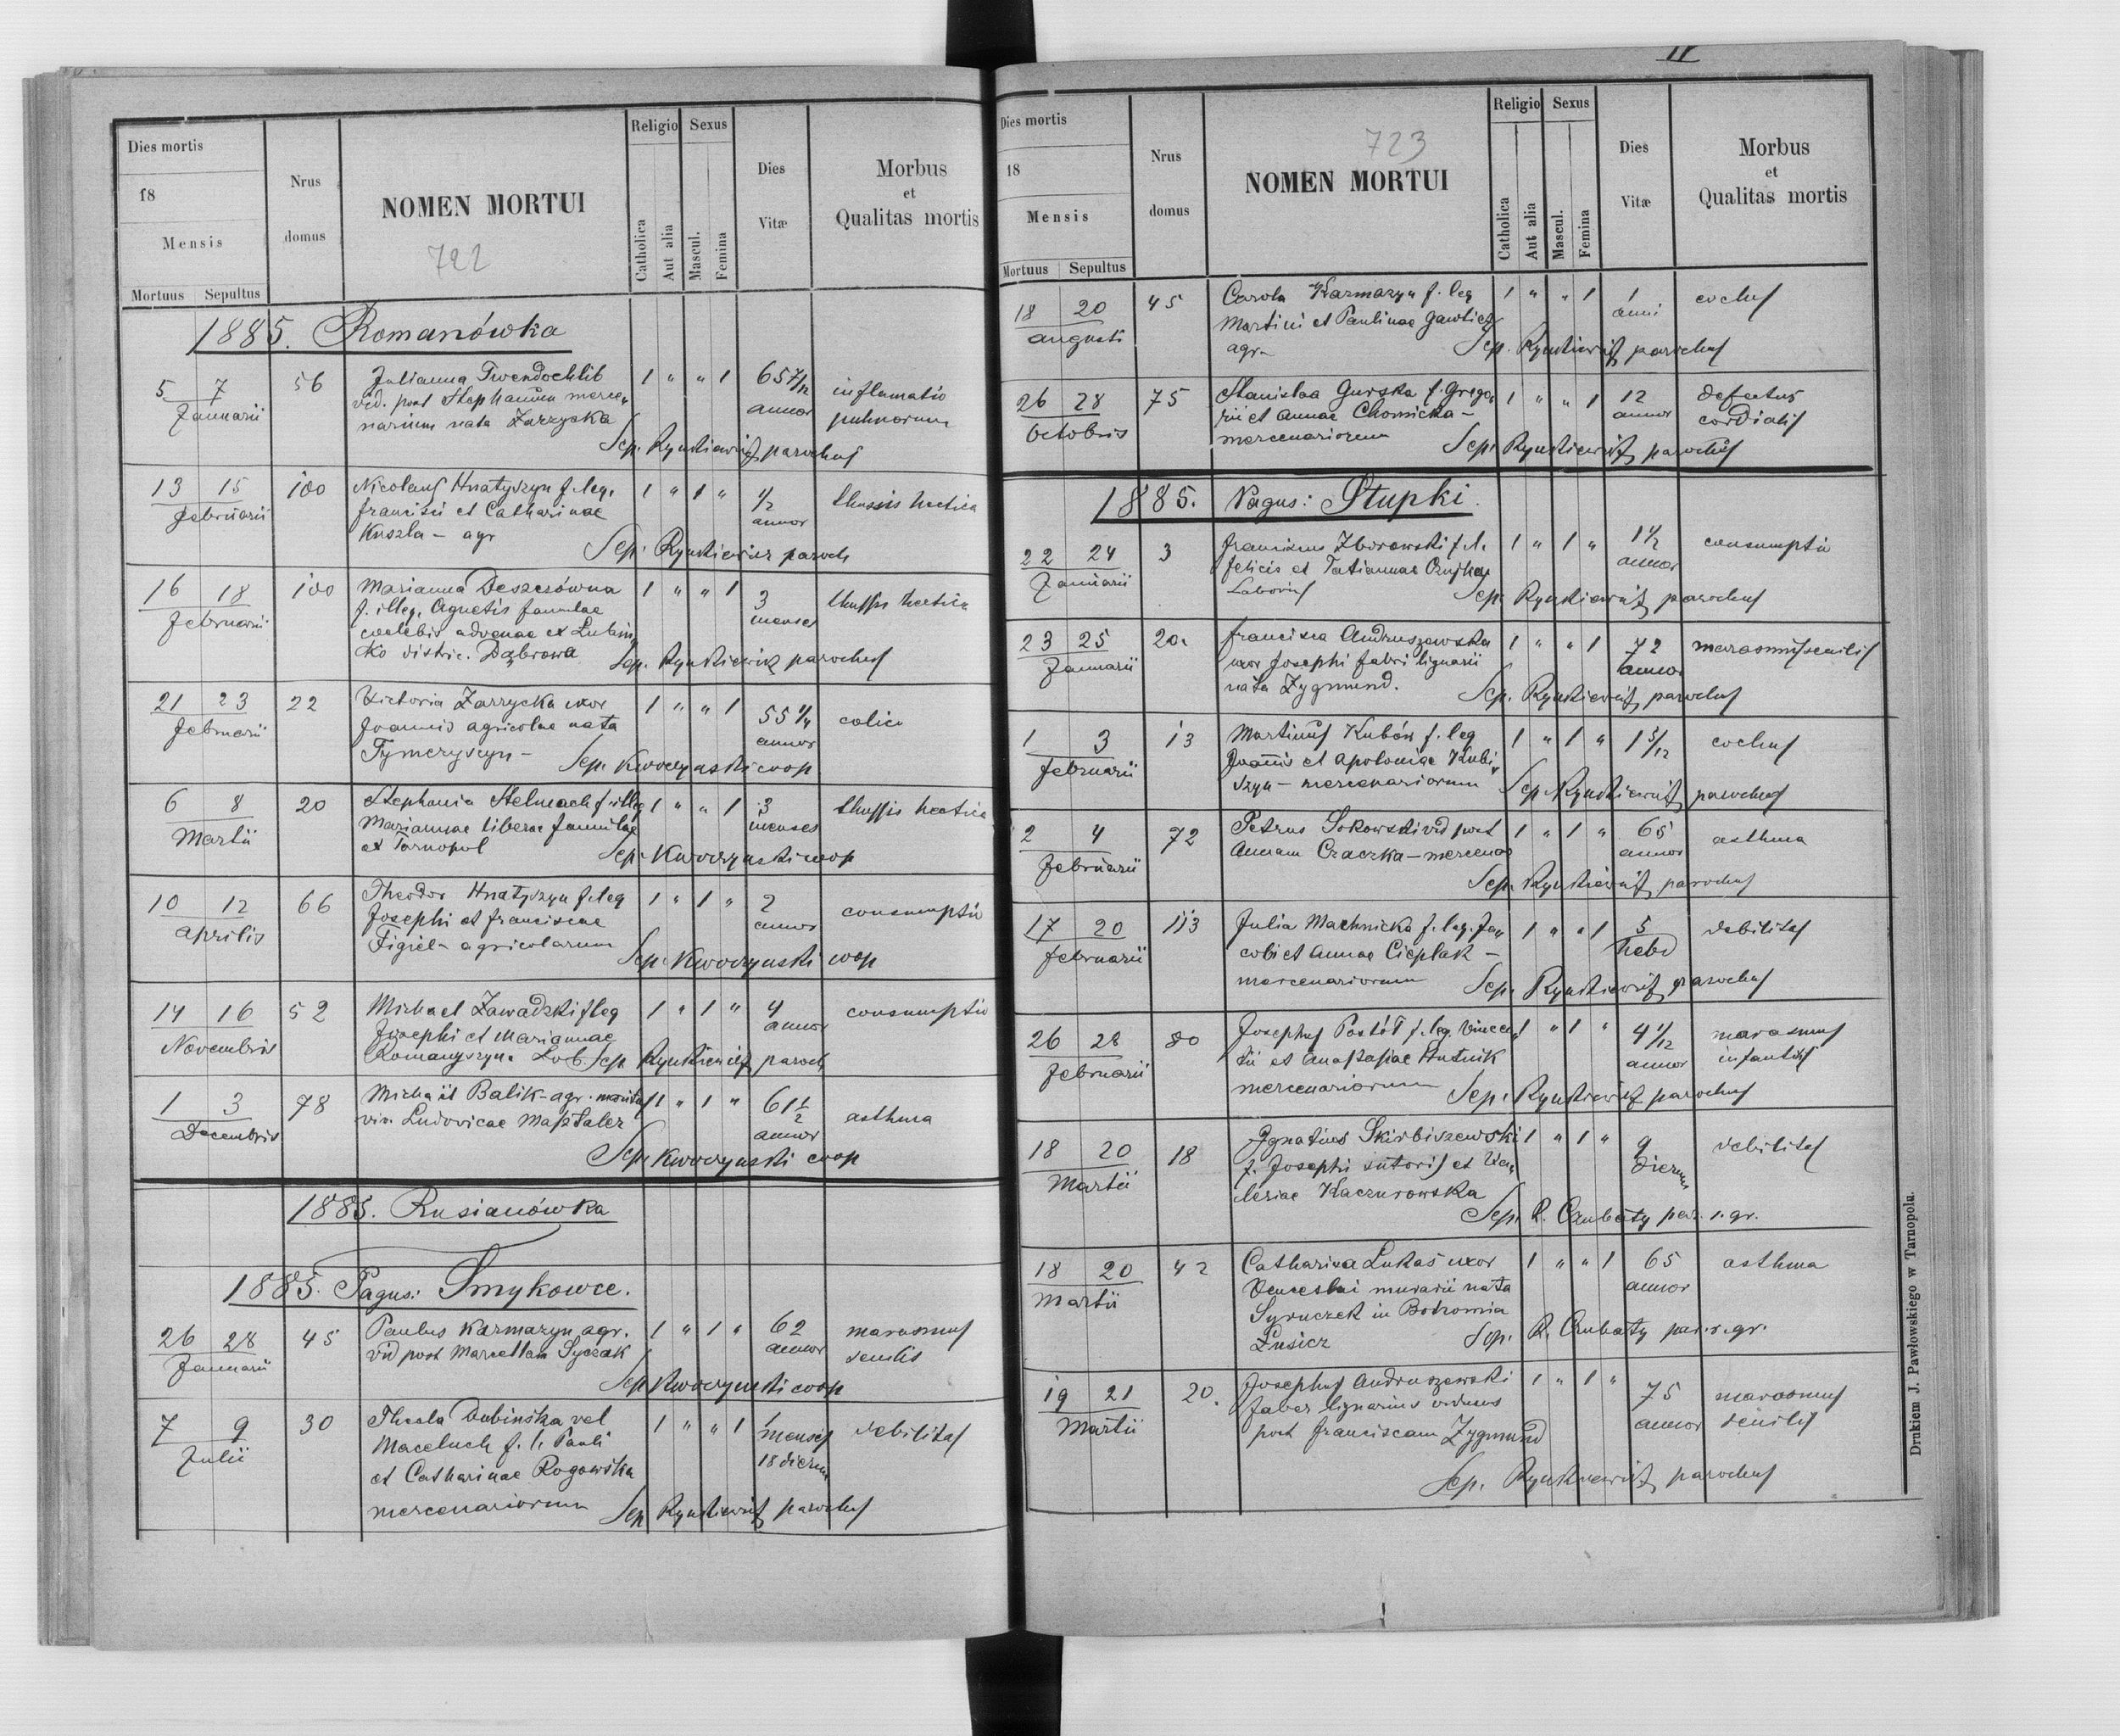 Dies mortis
18
Mensis
Mortuus Sepultus
Nrus
domus
NOMEN MORTUI
722
Religio
Catholica
Aut alia
Sexus
Mascul.
Femina
Dies
Vitæ
Morbus
et
Qualitas mortis
1885. Romanówka
5 7 56 Julianna Twendochlib 1 " " 1 65 7/12 inflamatio
Januarii vid. post Stephanum merce„ annor pulmorum
narium nata Zarzycka
Sep. Rynkiewicz parochus
13 15 100 Nicolaus Hnatyszyn f. leg. 1 " 1 " 1/2 thussis hectica
Februarii francisci et Catharinae annor
Kuszla - agr
Sep. Rynkiewicz paroch
16 18 100 Marianna Deszczówna 1 " " 1 3 thussis hectica
Februarii f. illeg. Agnetis famulae menses
coelebis advenae ex Lubin
ko distric. Dąbrowa Sep. Rynkiewicz parochus
21 23 22 Victoria Zarzycka uxor 1 " " 1 55 1/4 colica
Februarii Joannis agricolae nata annor
Tymczyszyn -
Sep. Kwoczynski coop
6 8 20 Stephania Stelmach f illeg 1 " " 1 3 thussis hectica
Martii Mariannae liberae famulae menses
ex Tarnopol Sep. Kwoczynski coop
10 12 66 Theodor Hnatyszyn f. leg 1 " 1 " 2 consumptio
Aprilis Josephi et franciscae annor
Figiel - agricolarum
Sep. Kwoczynski coop
14 16 52 Michael Zawadzki f leg 1 " 1 " 4 consumptio
Novembris Josephi et Mariannae annor
Romanyszyn. Lab. Sep. Rynkiewicz paroch
1 3 78 Michaël Balik - agr. maritus 1 " 1 " 61 1/2 asthma
Decembris viv. Ludovicae Masztaler annor
Sep. Kwoczynski coop
1885. Rusianówka
1885. Pagus: Smykowce.
26 28 45 Paulus Karmazyn agr. 1 " 1 " 62 marasmus
Januarii vid post Marcellam Syczak annor senilis
Sep Kwoczynski coop
7 9 30 Thecla Dubinska vel 1 " " 1 1 debilitas
Julii Maceluch f. l. Pauli mensis
et Catharinae Rogowska 18 dierum
mercenariorum Sep Rynkiewicz parochus
II
Dies mortis
18
Mensis
Mortuus Sepultus
Nrus
domus
723
NOMEN MORTUI
Religio
Catholica
Aut alia
Sexus
Mascul.
Femina
Dies
Vitæ
Morbus
et
Qualitas mortis
18 20 45 Carola Karmazyn f. leg 1 " " 1 1 cochus
Augusti Martini et Paulinae Gawlicz anni
agr- Sep. Rynkiewicz parochus
26 28 75 Stanislaa Gurska f. Grego„ 1 " " 1 12 defectus
Octobris rii et Annae Chomicka - annor cordialis
mercenariorum Sep. Rynkiewicz parochus
1885. Pagus: Stupki.
22 24 3 franciscus Zborowski f. l. 1 " 1 " 1 1/2 consumptio
Januarii felicis et Tatiannae annor
Laboris Sep. Rynkiewicz parochus
23 25 20. francisca Andruszewska 1 " " 1 72 marasmus senilis
Januarii uxor Josephi fabri lignarii annor
nata Zygmund. Sep. Rynkiewicz parochus
1 3 13 Martinus Kubów f. leg 1 " 1 " 1 5/12 cochus
Februarii Joannis et Apoloniae Kubi„
szyn - mercenariorum Sep. Rynkiewicz parochus
2 4 72 Petrus Sokowski vid post 1 " 1 " 65 asthma
Februarii Annam Czaczka - mercenar annor
Sep. Rynkiewicz parochus
17 20 113 Julia Machnicka f. leg. Ja„ 1 " " 1 5 debilitas
Februarii cobi et Annae Cieplak - hebd
mercenariorum Sep. Rynkiewicz parochus
26 28 80 Josephus Postół f. leg. Vincen„ 1 " 1 " 4 1/12 marasmus
Februarii tii et Anastasiae Hutnik annor infantilis
mercenariorum Sep. Rynkiewicz parochus
18 20 18 Ignatius Skirbiszewski 1 " 1 " 9 debilitas
Martii f. Josephi sutoris et Va„ dierum
leriae Kaczurowska
Sep. R. Czubaty par. r. gr.
18 20 42 Catharina Lukaś uxor 1 " " 1 65 asthma
Martii Venceslai murarii nata annor
Syruczek in Bohomia
Lusicz Sep. R. Czubaty par. r. gr.
19 21 20. Josephus Andruszewski 1 " 1 " 75 marasmus
Martii faber lignarius viduus annor senilis
post franciscam Zygmund
Sep. Rynkiewicz parochus
Drukiem J. Pawłowskiego w Tarnopolu.